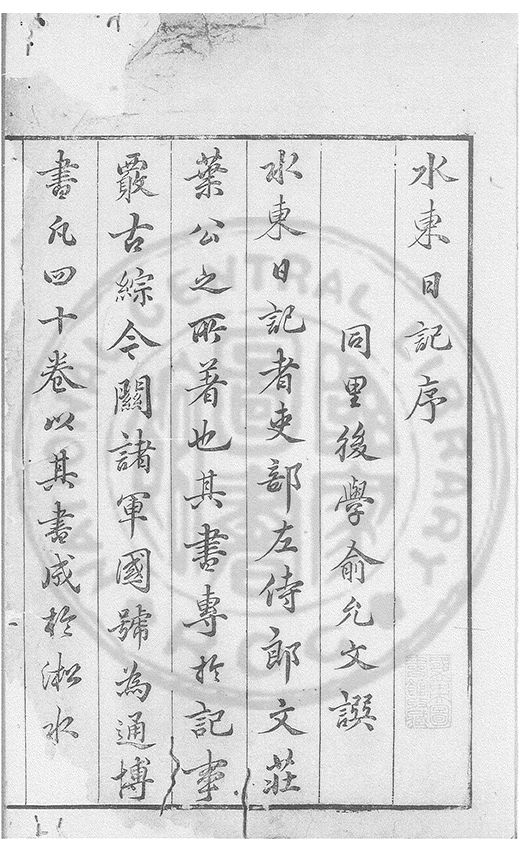 水東日記序
同里後學俞允文譔
水東日記者吏部左侍郎文莊
葉公之所著也其書專於記事
覈古綜今關諸軍國號為通博
書凡四十卷以其書成於淞水